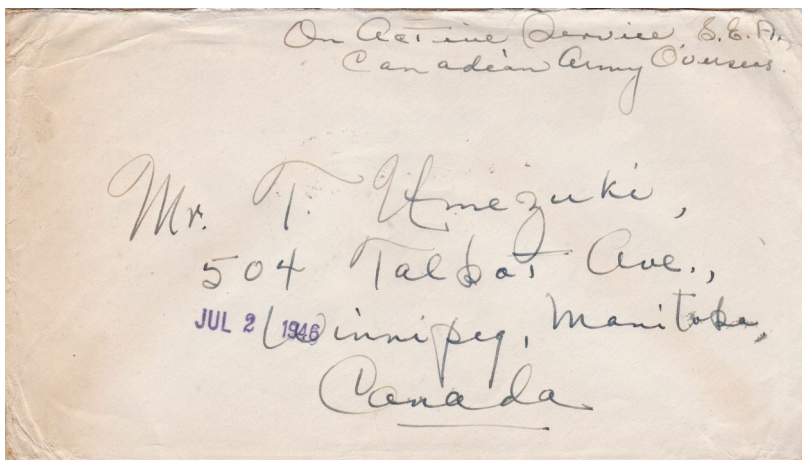 On Active Service S.E.A.
Canadian Army Overseas.
Mr. T. Umezuki,
504 Talbot Ave.,
JUL 2 1946
Winnipeg, Manitoba,
Canada